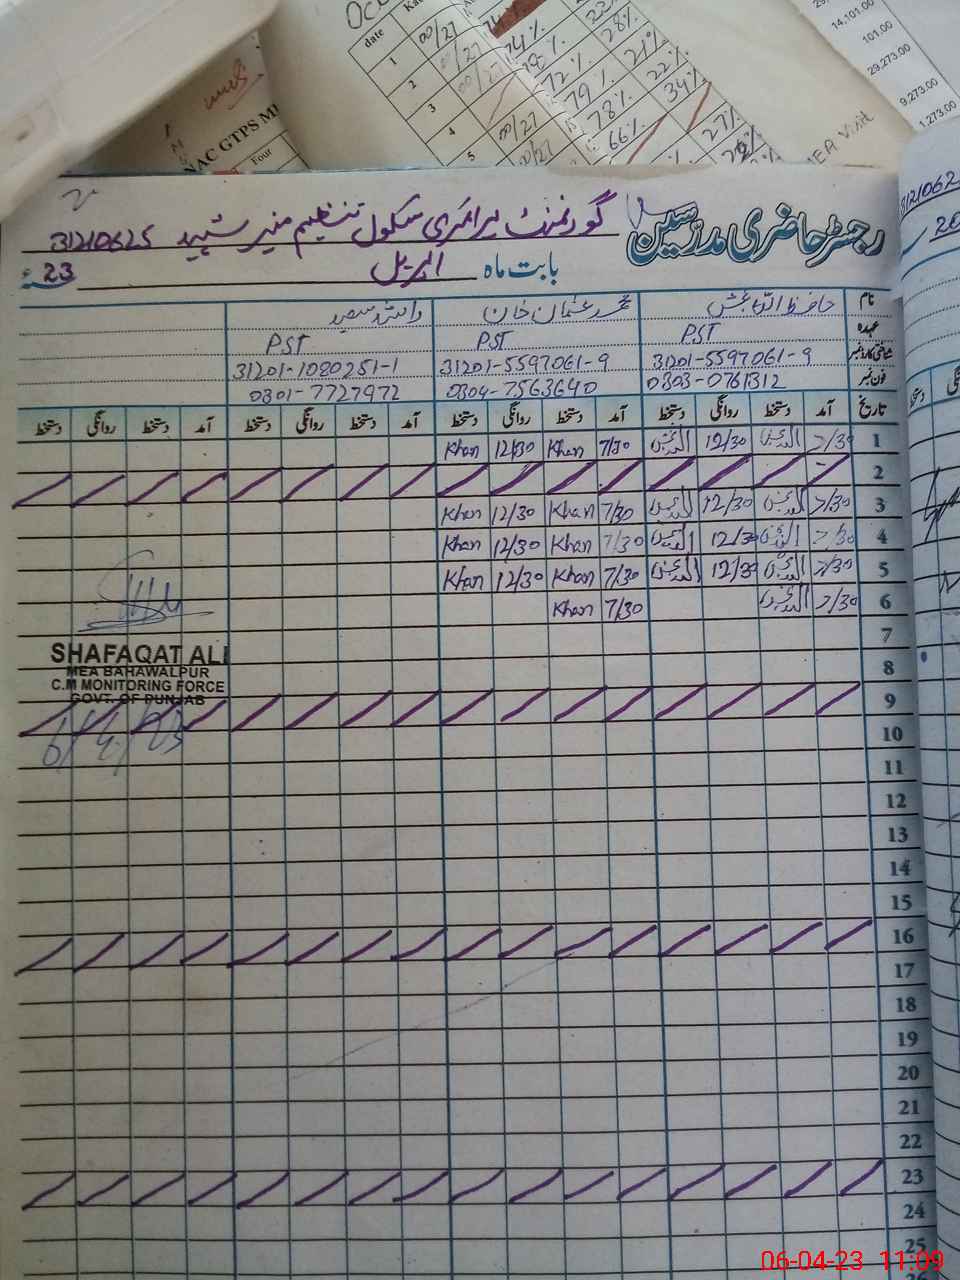 date
1
2
3
4
5
00/27
00/27
00/27
74%
72%
79%
78%
66%
28%
21%
22%
34%
27%
14,101.00
101.00
29,273.00
9,273.00
1,273.00
MEA Visit
NAC GTPS
Four
رجسٹر حاضری مدرسین
گورنمنٹ پرائمری سکول تنظیم منیر شہید 31210625
بابت ماہ اپریل 23ء
نام حافظ اللہ بخش محمد عثمان خان راشد سعید
عہدہ PST PST PST
شناختی کارڈ نمبر 31201-5597061-9 31201-5597061-9 31201-1080251-1
فون نمبر 0303-0761312 0304-7563640 0301-7727972
تاریخ آمد دستخط روانگی دستخط آمد دستخط روانگی دستخط آمد دستخط روانگی دستخط آمد دستخط روانگی دستخط
1 7/30 12/30 7/30 Khan 12/30 Khan
2
3 7/30 12/30 7/30 Khan 12/30 Khan
4 7/30 12/30 7/30 Khan 12/30 Khan
5 7/30 12/30 7/30 Khan 12/30 Khan
6 7/30 7/30 Khan
7
8
9
10
11
12
13
14
15
16
17
18
19
20
21
22
23
24
25
SHAFAQAT ALI
MEA BAHAWALPUR
C.M MONITORING FORCE
GOVT. OF PUNJAB
6/4/23
06-04-23 11:09